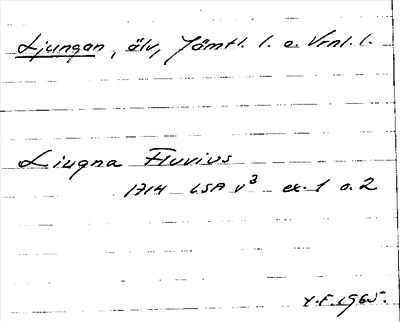 Ljungan, älv, Jämtl. l. o. Vrnl. l.
Liugna Fluvius
1714 LSA v³ ex. 1 o. 2
Y.F. 1965.